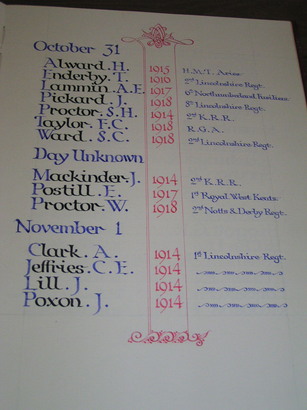 October 31
Alward. H. 1915 H.M.T. Aries
Enderby. T. 1916 2nd Lincolnshire Regt.
Lammin. A.E. 1917 6th Northumberland Fusiliers
Pickard. J. 1918 8th Lincolnshire Regt.
Proctor. S.H. 1914 2nd K.R.R.
Taylor. F.C. 1918 R.G.A.
Ward. S.C. 1918 2nd Lincolnshire Regt.
Day Unknown
Mackinder. J. 1914 2nd K.R.R.
Postill. E. 1917 1st Royal West Kents
Proctor. W. 1918 2nd Notts & Derby Regt.
November 1
Clark. A. 1914 1st Lincolnshire Regt.
Jeffries. C. E. 1914
Lill. J. 1914
Poxon. J. 1914